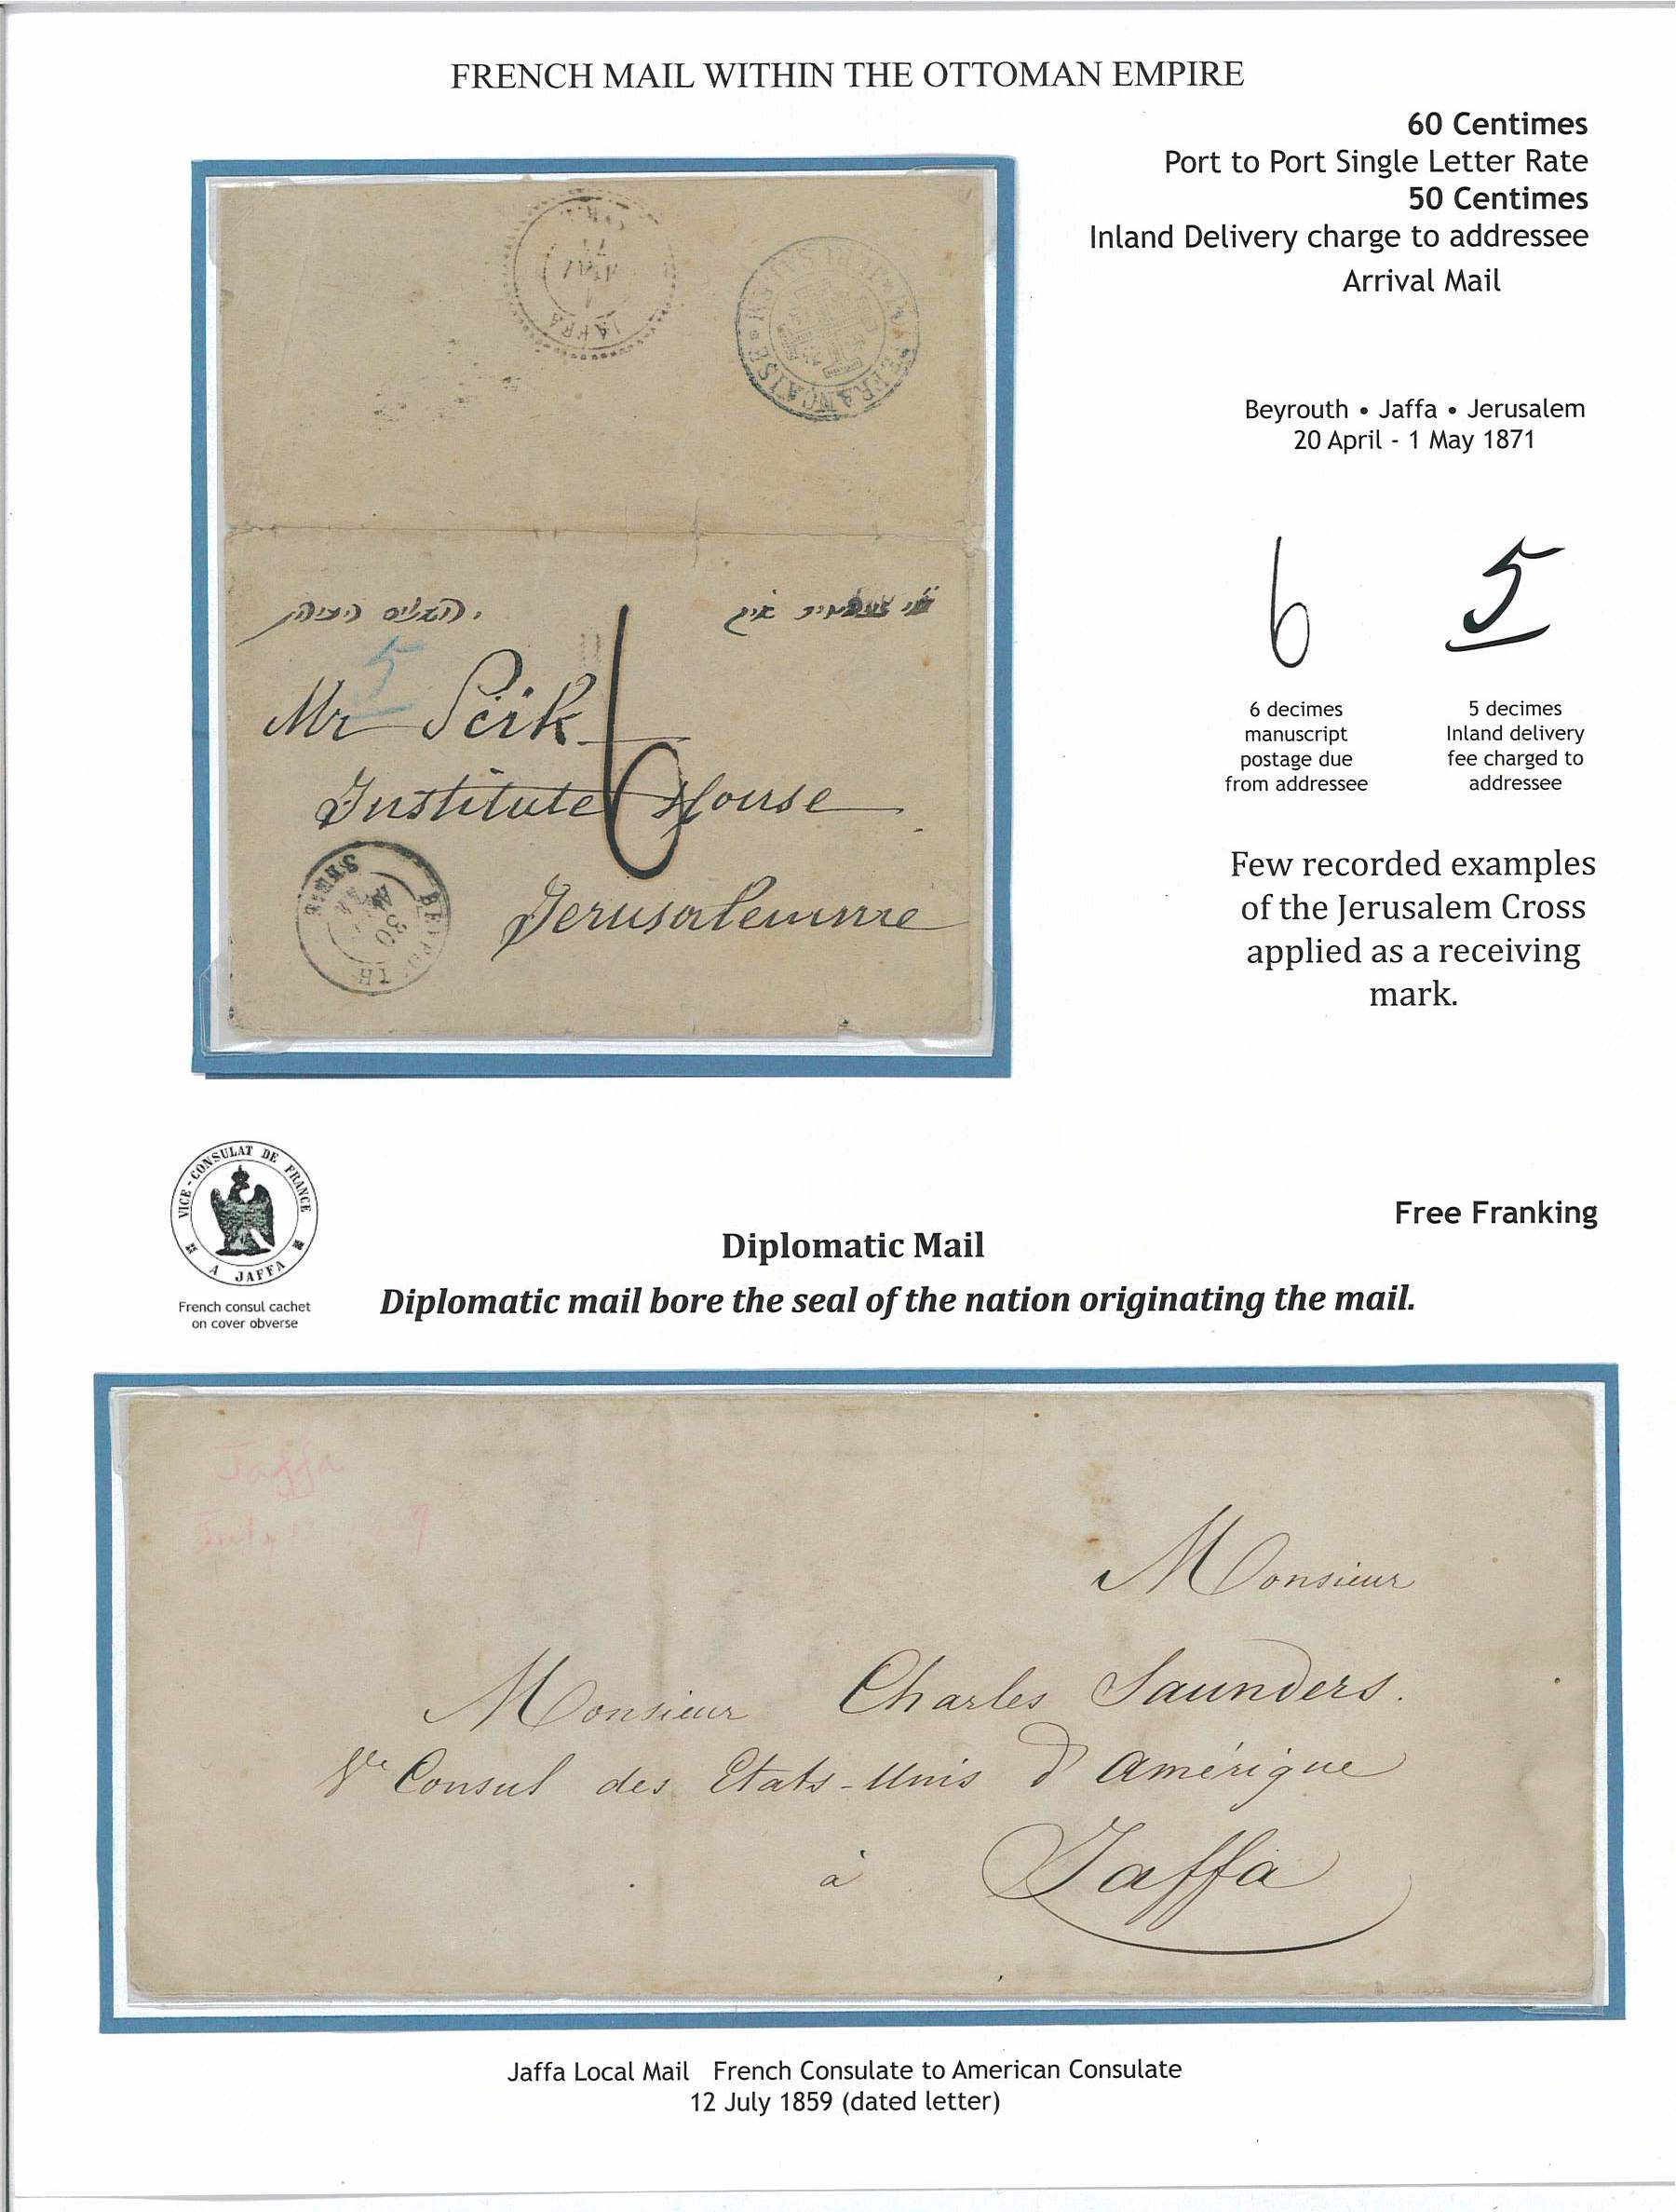 FRENCH MAIL WITHIN THE OTTOMAN EMPIRE
60 Centimes
Port to Port Single Letter Rate
50 Centimes
Inland Delivery charge to addressee
Arrival Mail
JAFFA
1
MAI
71
FRANÇAISE
Beyrouth • Jaffa • Jerusalem
20 April - 1 May 1871
5
6
Mr Scik
Institute House
Jerusalemme
BEYROUTH
SYRIE
30
6
5
6 decimes
manuscript
postage due
from addressee
5 decimes
Inland delivery
fee charged to
addressee
Few recorded examples
of the Jerusalem Cross
applied as a receiving
mark.
VICE-CONSULAT DE FRANCE
A JAFFA
French consul cachet
on cover obverse
Free Franking
Diplomatic Mail
Diplomatic mail bore the seal of the nation originating the mail.
Jaffa
July
Monsieur
Monsieur Charles Saunders.
Vce Consul des Etats-Unis d'Amérique
à Jaffa
Jaffa Local Mail French Consulate to American Consulate
12 July 1859 (dated letter)